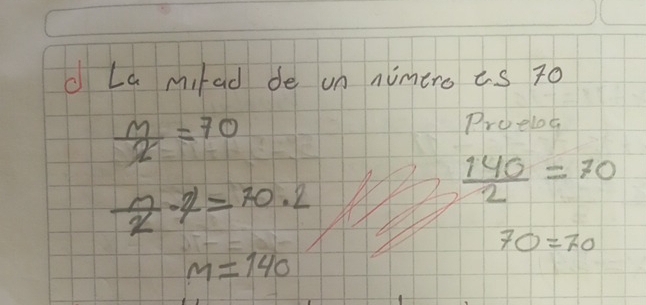 d La mitad de un número es 70
m/2 = 70
m/2 · 2 = 70 . 2
m = 140
Prueba
140/2 = 70
70 = 70